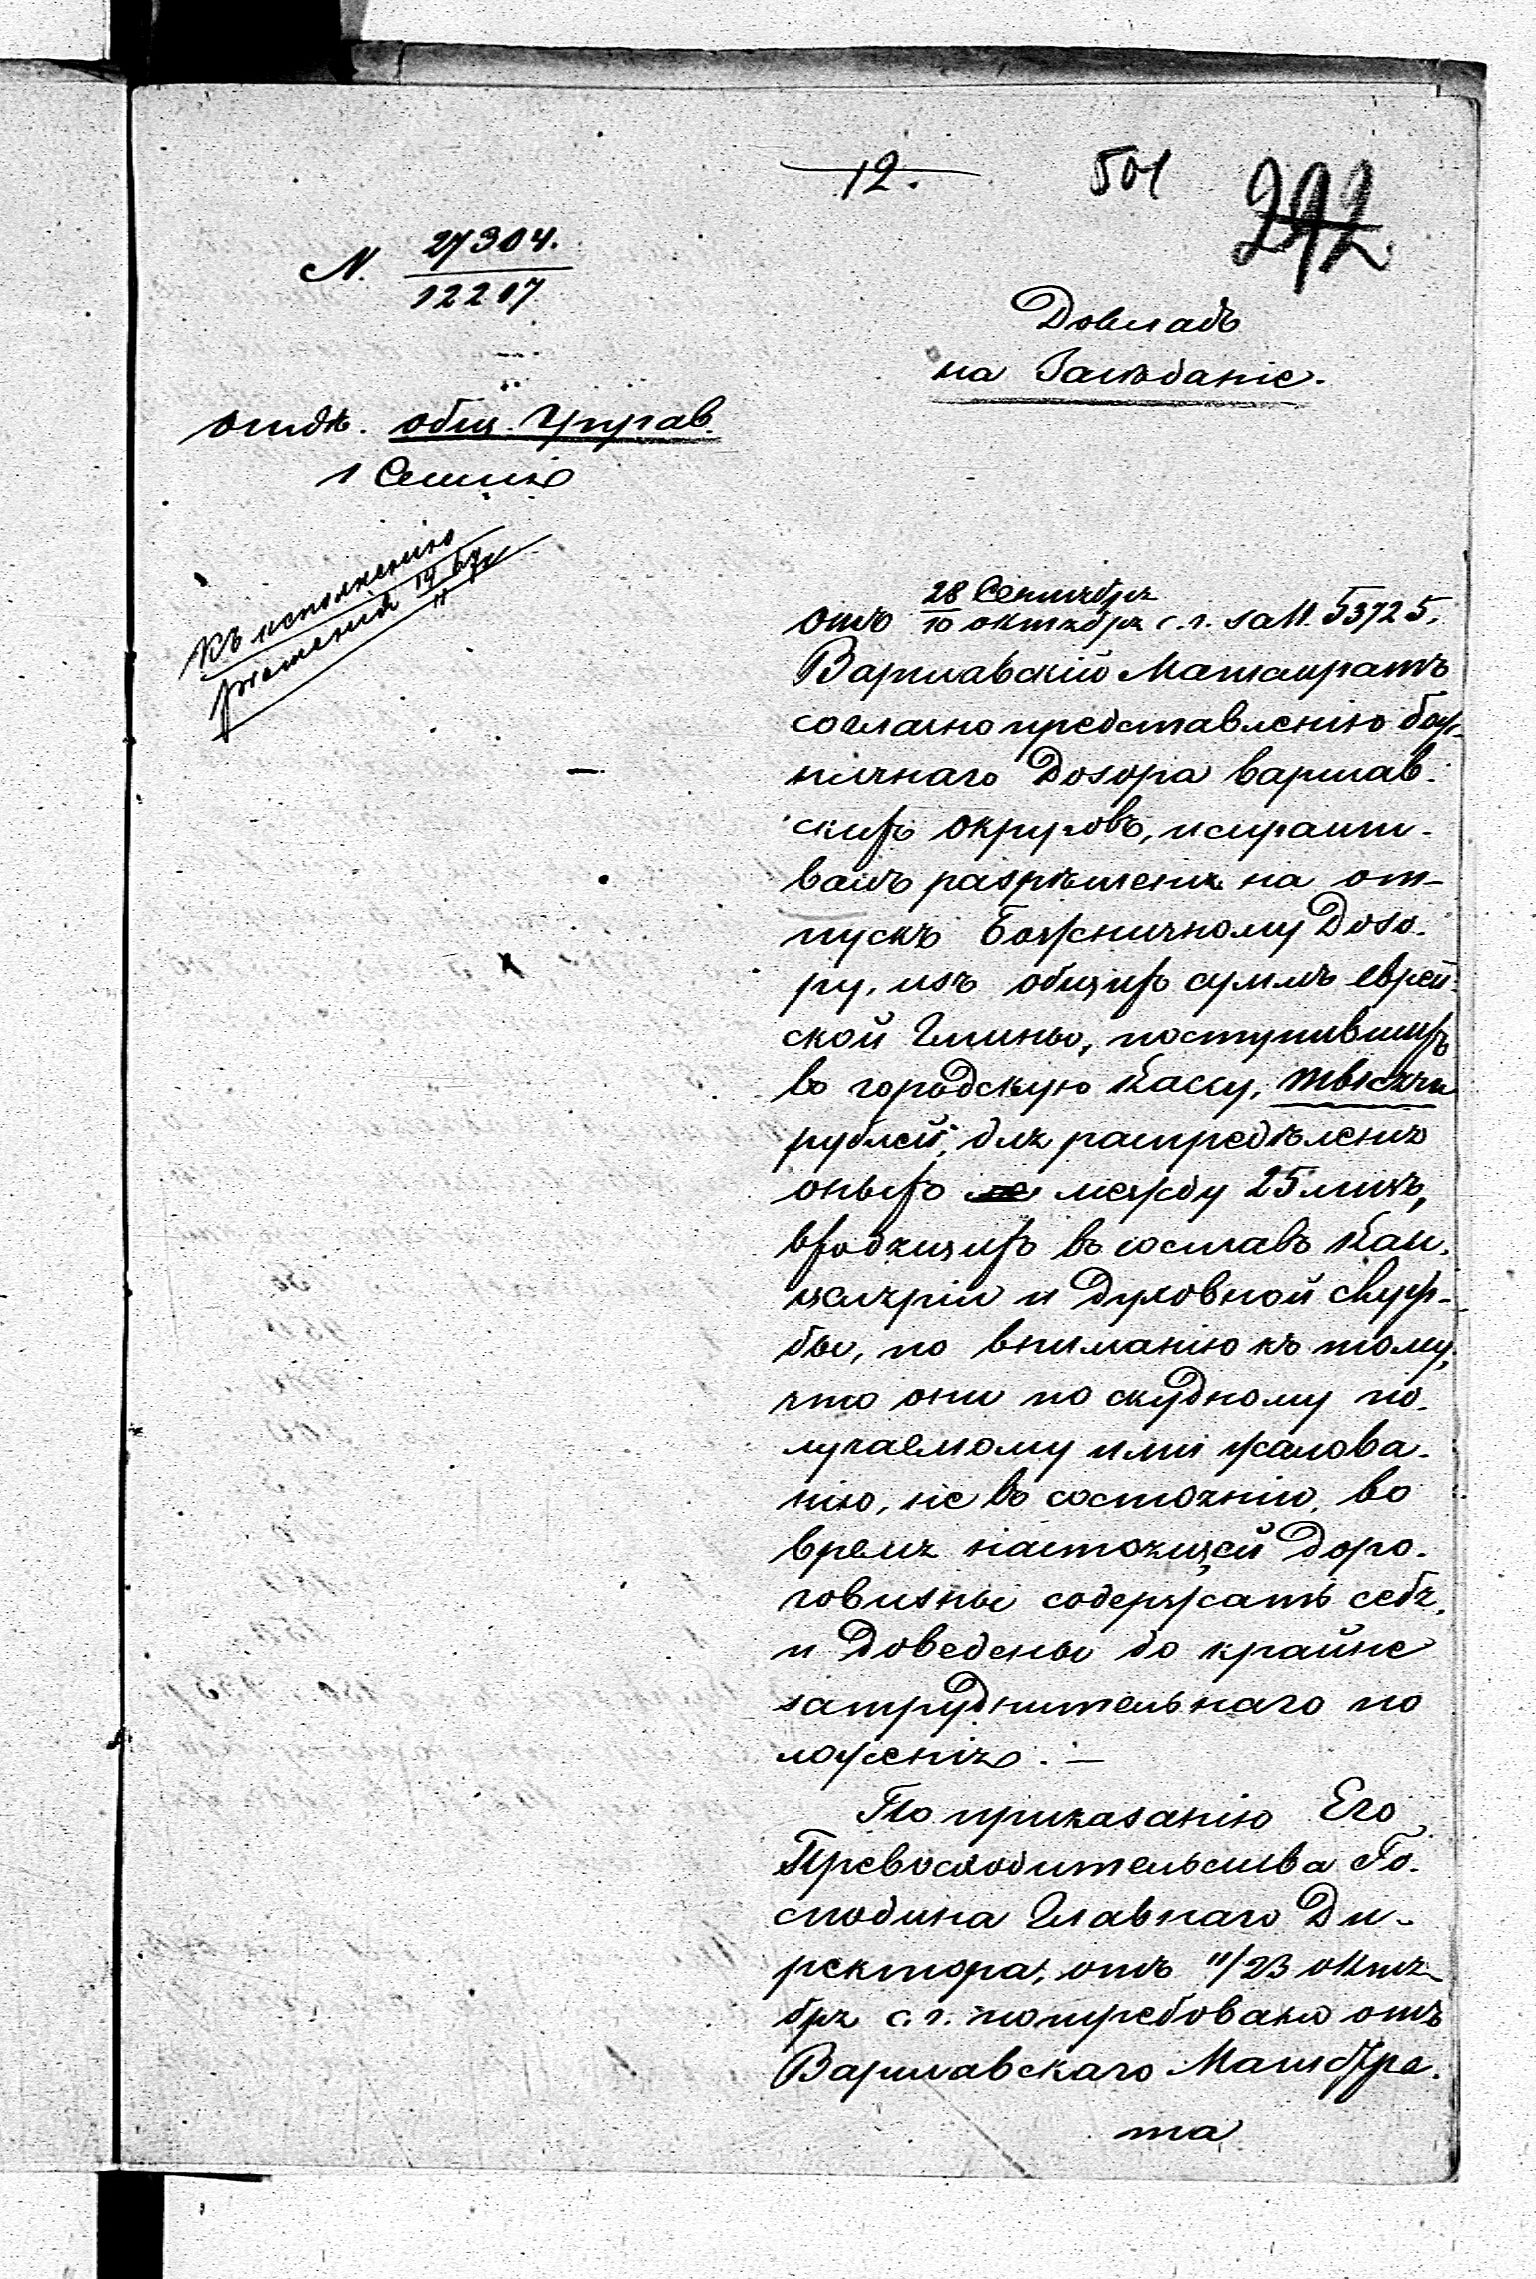 12.
501
292.
N. 27304.
12217
Докладъ
на Засѣданіе.
отдѣ. общ. Управ.
1 Секція
Къ исполненію
рѣшенія 14/11 67 г.
отъ 28 Сентября
10 октября с. г. за N. 53725,
Варшавскій Магистратъ
согласно представленію бож-
ничнаго Дозора варшав-
скихъ округовъ, испраши-
ваетъ разрѣшенія на от-
пускъ Божничному Дозо-
ру, изъ общихъ суммъ еврей-
ской Гмины, поступившихъ
въ городскую кассу, тысячи
рублей, для распредѣленія
оныхъ между 25 лицъ,
входящихъ въ составъ Кан-
целяріи и Духовной служ-
бы, по вниманію къ тому,
что они по скудному по-
лучаемому ими жалова-
нію, не въ состояніи, во
время настоящей доро-
говизны содержать себя,
и доведены до крайне
затруднительнаго по
ложенія. —
По приказанію Его
Превосходительства Го-
сподина Главнаго Ди-
ректора, отъ 11/23 октя-
бря с. г. потребовано отъ
Варшавскаго Магистра-
та